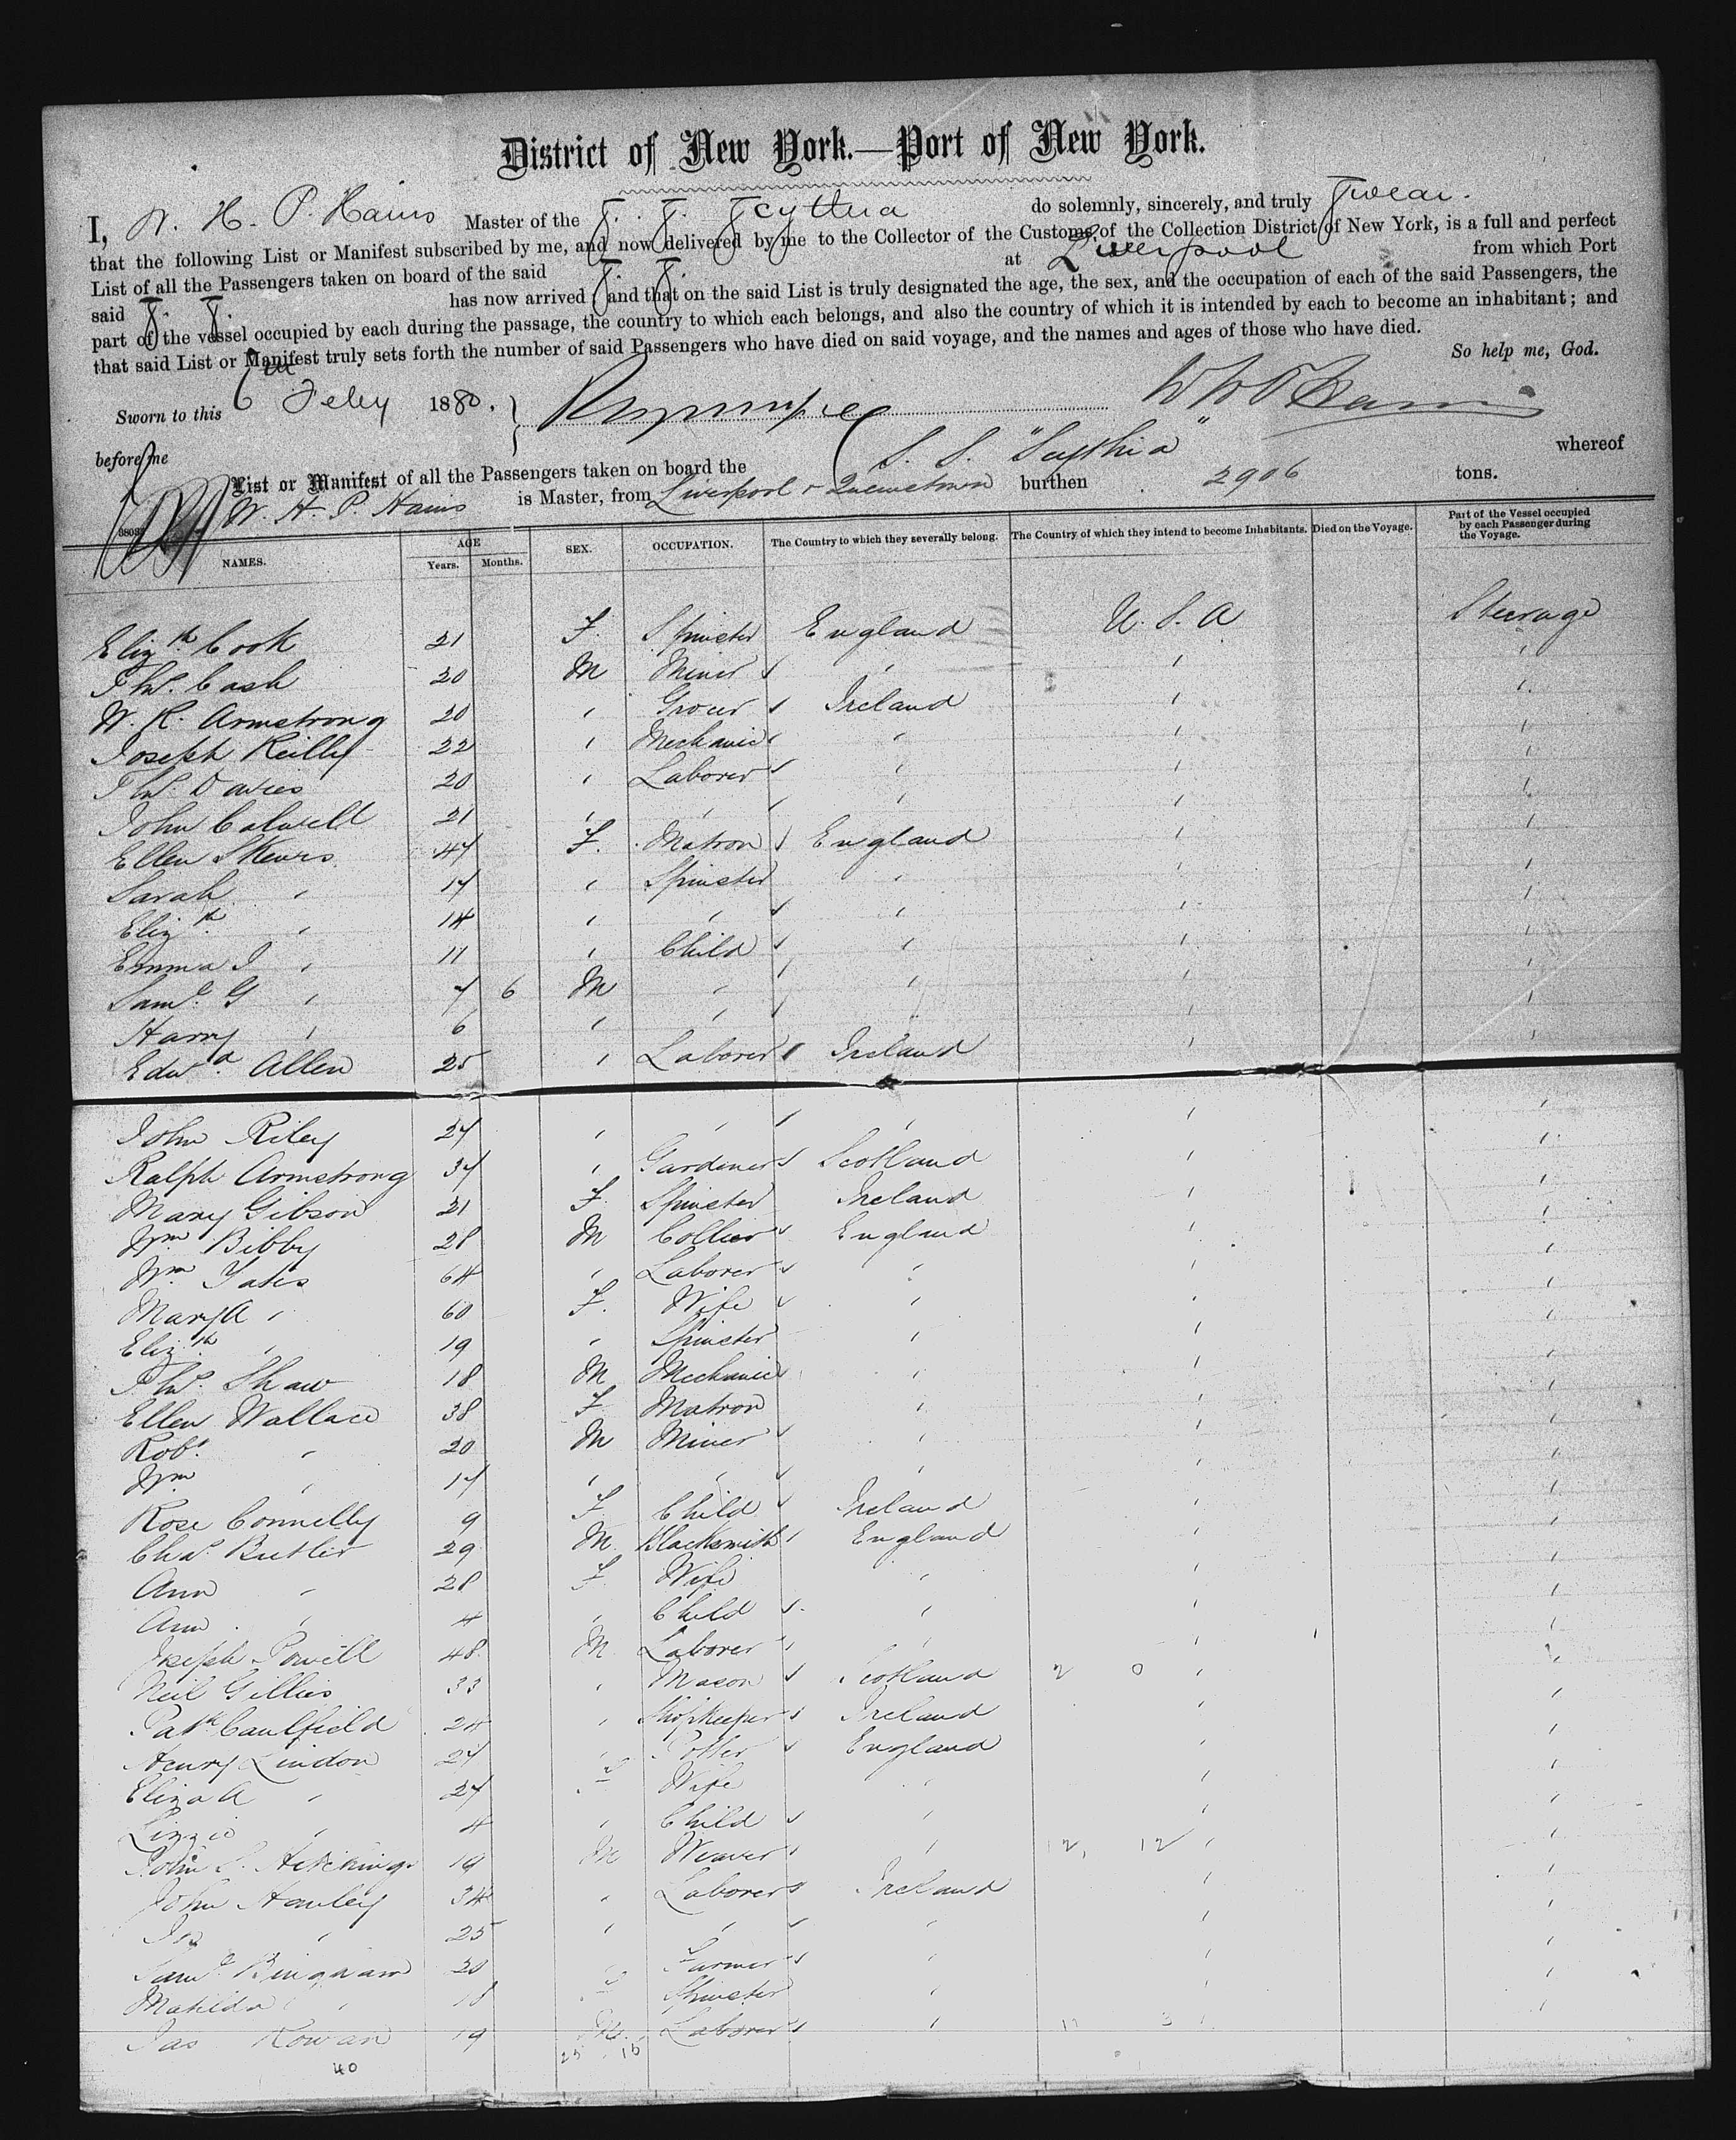 District of New York.—Port of New York.
I, W. H. P. Hains Master of the S. S. Scythia do solemnly, sincerely, and truly Swear.
that the following List or Manifest subscribed by me, and now delivered by me to the Collector of the Customs of the Collection District of New York, is a full and perfect
List of all the Passengers taken on board of the said S. S. at Liverpool from which Port
said S. S. has now arrived; and that on the said List is truly designated the age, the sex, and the occupation of each of the said Passengers, the
part of the vessel occupied by each during the passage, the country to which each belongs, and also the country of which it is intended by each to become an inhabitant; and
that said List or Manifest truly sets forth the number of said Passengers who have died on said voyage, and the names and ages of those who have died.
So help me, God.
Sworn to this 6th Feby 1880.
before me
List or Manifest of all the Passengers taken on board the S. S. "Scythia" whereof
W. H. P. Hains is Master, from Liverpool & Queenstown burthen 2906 tons.
NAMES. AGE Years. Months. SEX. OCCUPATION. The Country to which they severally belong. The Country of which they intend to become Inhabitants. Died on the Voyage. Part of the Vessel occupied by each Passenger during the Voyage.
Elizth Cook 21 F. Spinster England U. S. A Steerage
Thos. Cash 20 M Miner " " "
W. R. Armstrong 20 " Grocer Ireland " "
Joseph Reilly 22 " Mechanic " " "
Thos. Davies 20 " Laborer " " "
John Calwell 21 " " " " "
Ellen Skewis 47 F. Matron England " "
Sarah " 17 " Spinster " " "
Elizth " 14 " " " " "
Emma J " 11 " Child " " "
Saml. G " 7 6 M " " " "
Harry " 6 " " " " "
Edwd Allen 25 " Laborer Ireland " "
John Riley 27 " " " " "
Ralph Armstrong 37 " Gardener Scotland " "
Mary Gibson 21 F. Spinster Ireland " "
Wm Bibby 28 M Collier England " "
Wm Yates 64 " Laborer " " "
Mary A " 60 F. Wife " " "
Elizth " 19 " Spinster " " "
Thos. Shaw 18 M Mechanic " " "
Ellen Wallace 38 F Matron " " "
Robt. " 20 M Miner " " "
Wm " 17 " " " " "
Rose Connelly 9 F Child Ireland " "
Chas. Butler 29 M Blacksmith England " "
Ann " 28 F Wife " " "
Ann " 4 " Child " " "
Joseph Powell 48 M Laborer " " "
Neil Gillies 33 " Mason Scotland 2 0 " "
Patk Caulfield 24 " Shopkeeper Ireland " "
Henry Lindon 27 " Potter England " "
Eliza A " 27 F Wife " " "
Lizzie " 4 " Child " " "
John S. Hitchings 19 M Weaver " 12, 12 " "
John Hanley 34 " Laborer Ireland " "
Jas " 25 " " " " "
Saml. Bingham 20 " Farmer " " "
Matilda " 18 F Spinster " " "
Jas Rowan 19 M. Laborer " 11 3 " "
40 25 15